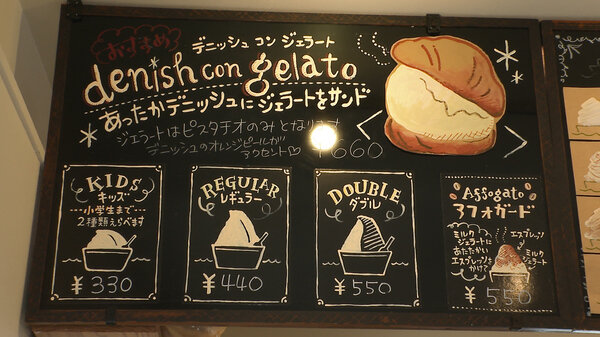 おすすめ
デニッシュ コン ジェラート
denish con gelato
あったかデニッシュにジェラートをサンド
ジェラートはピスタチオのみとなります
デニッシュのオレンジピールが
アクセント♡
¥660
KIDS
キッズ
小学生まで
2種類えらべます
¥330
REGULAR
レギュラー
¥440
DOUBLE
ダブル
¥550
Assogato
アフォガード
ミルク
ジェラートに
あたたかい
エスプレッソを
かけて
エスプレッソ
ミルク
ジェラート
¥550